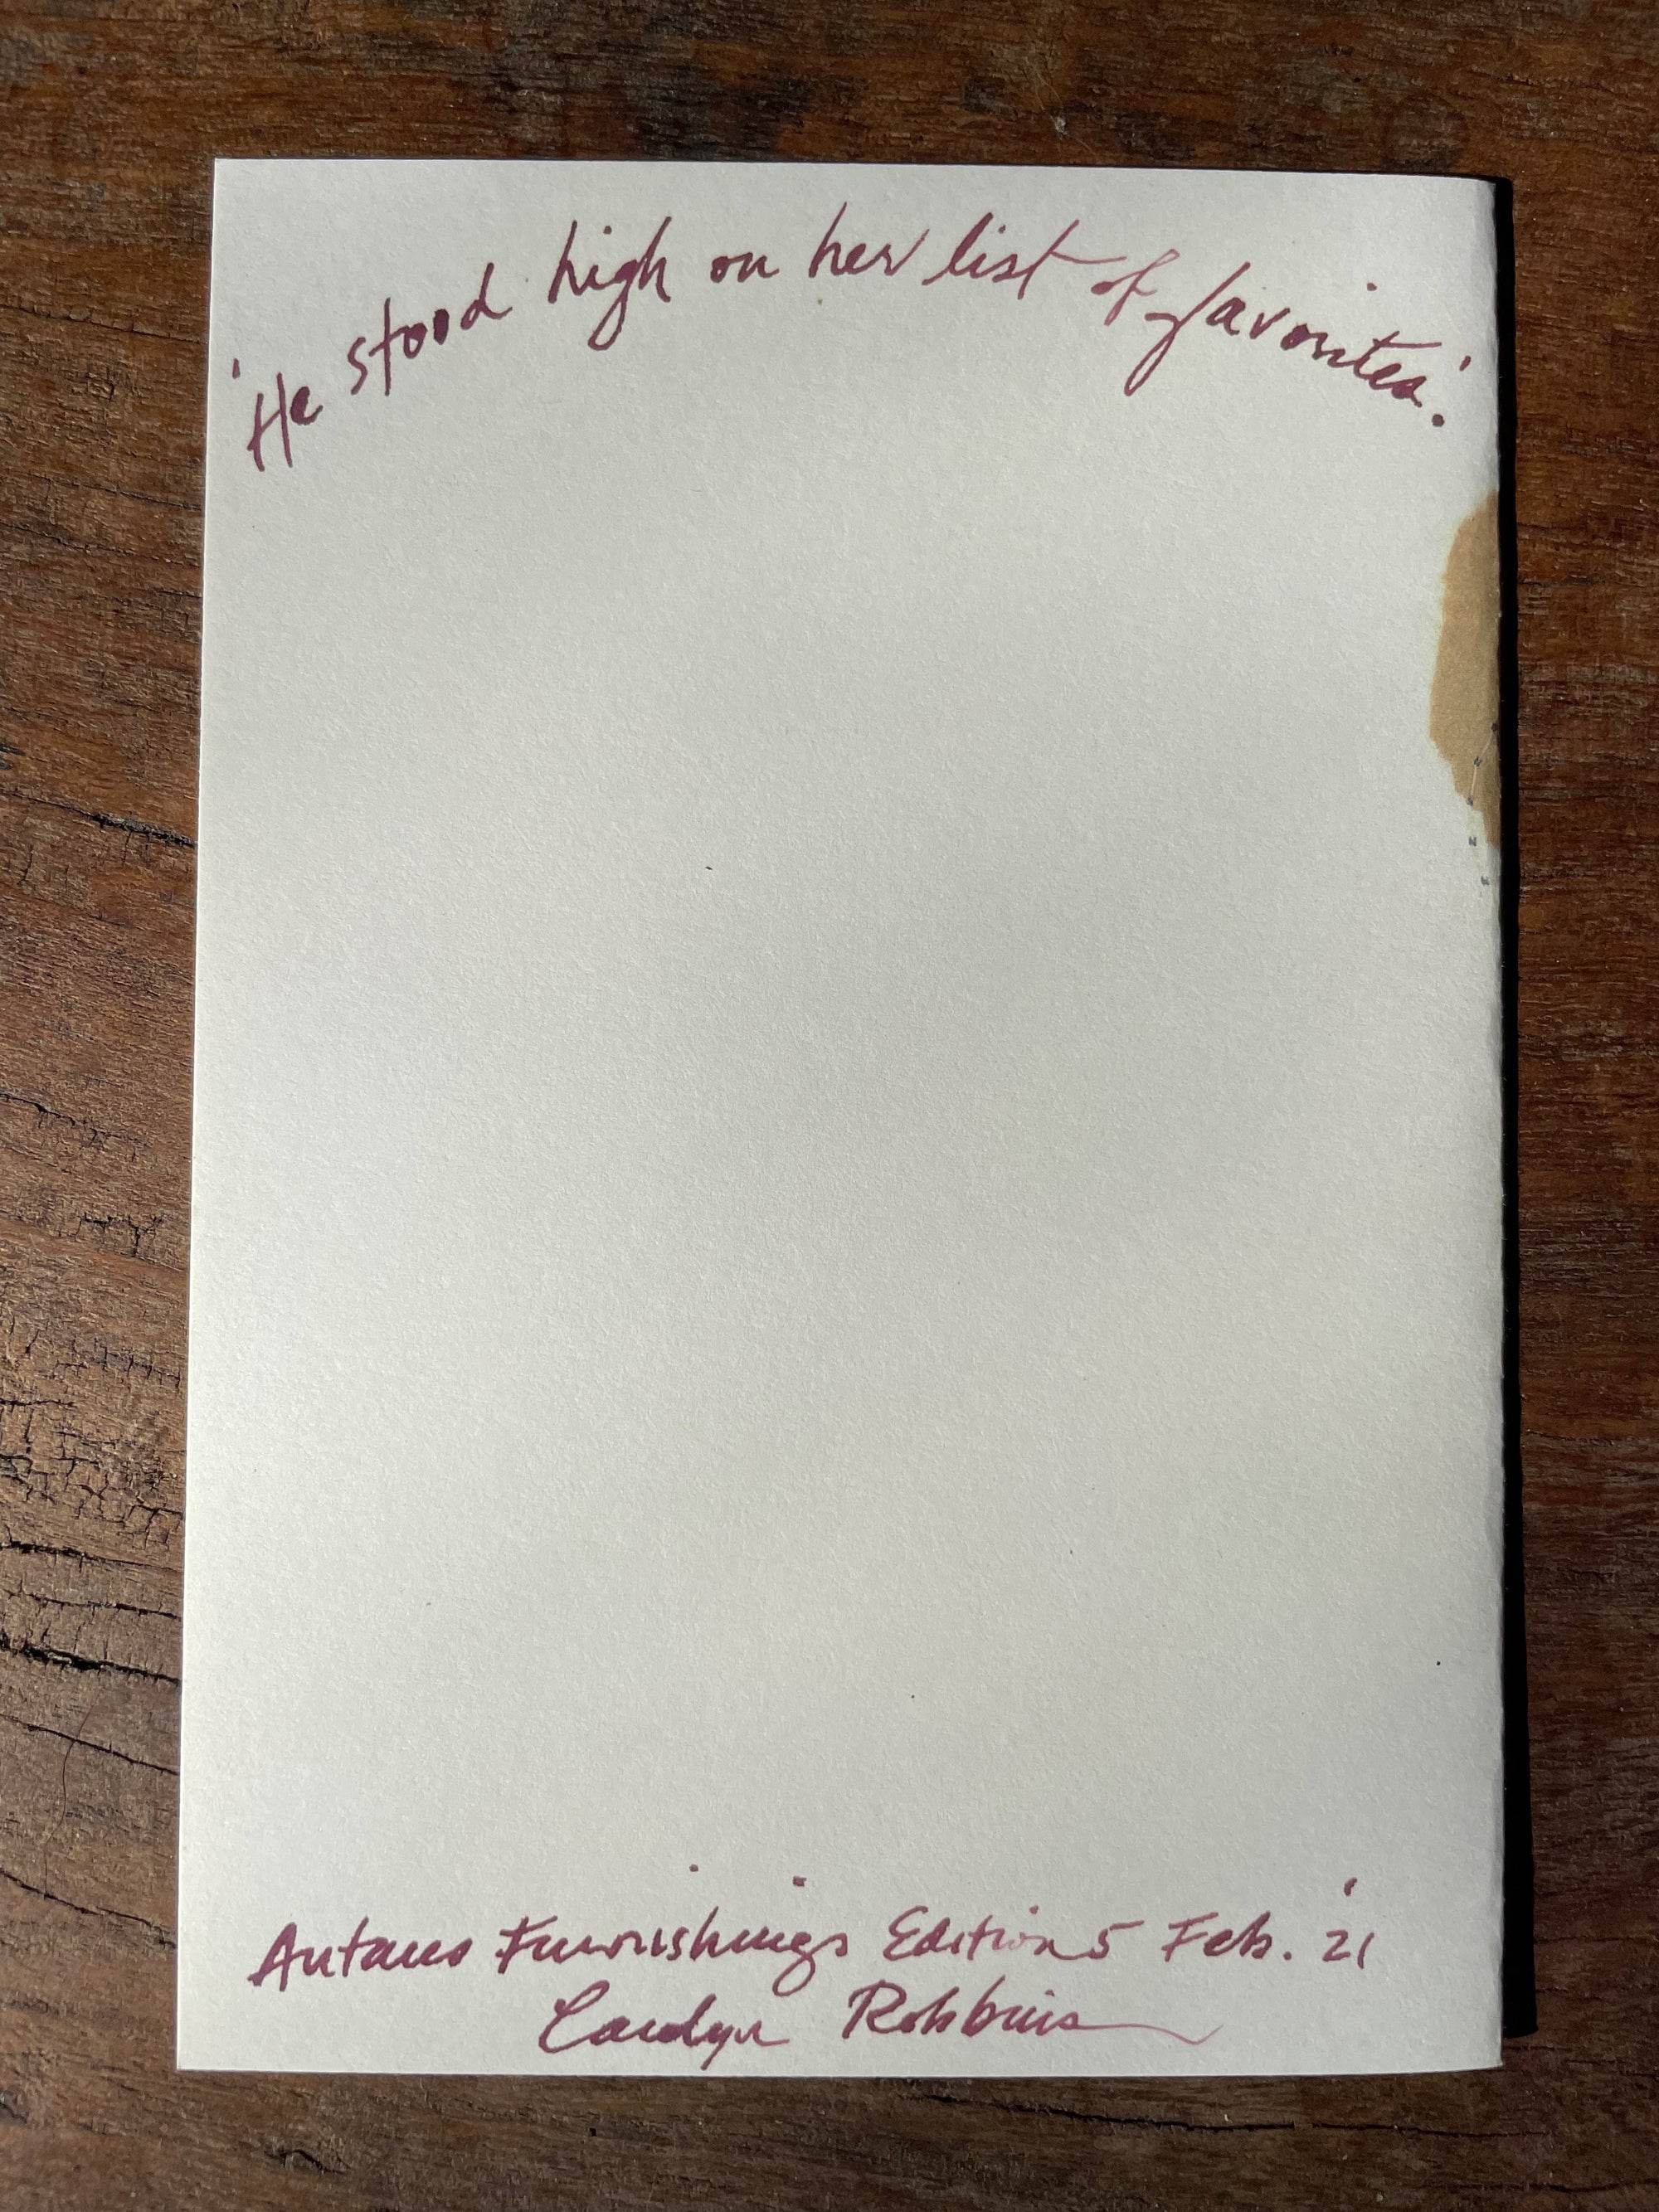 'He stood high on her list of favorites'.
Autaus Furnishings Edition 5 Feb. '21
Carolyn Robbins